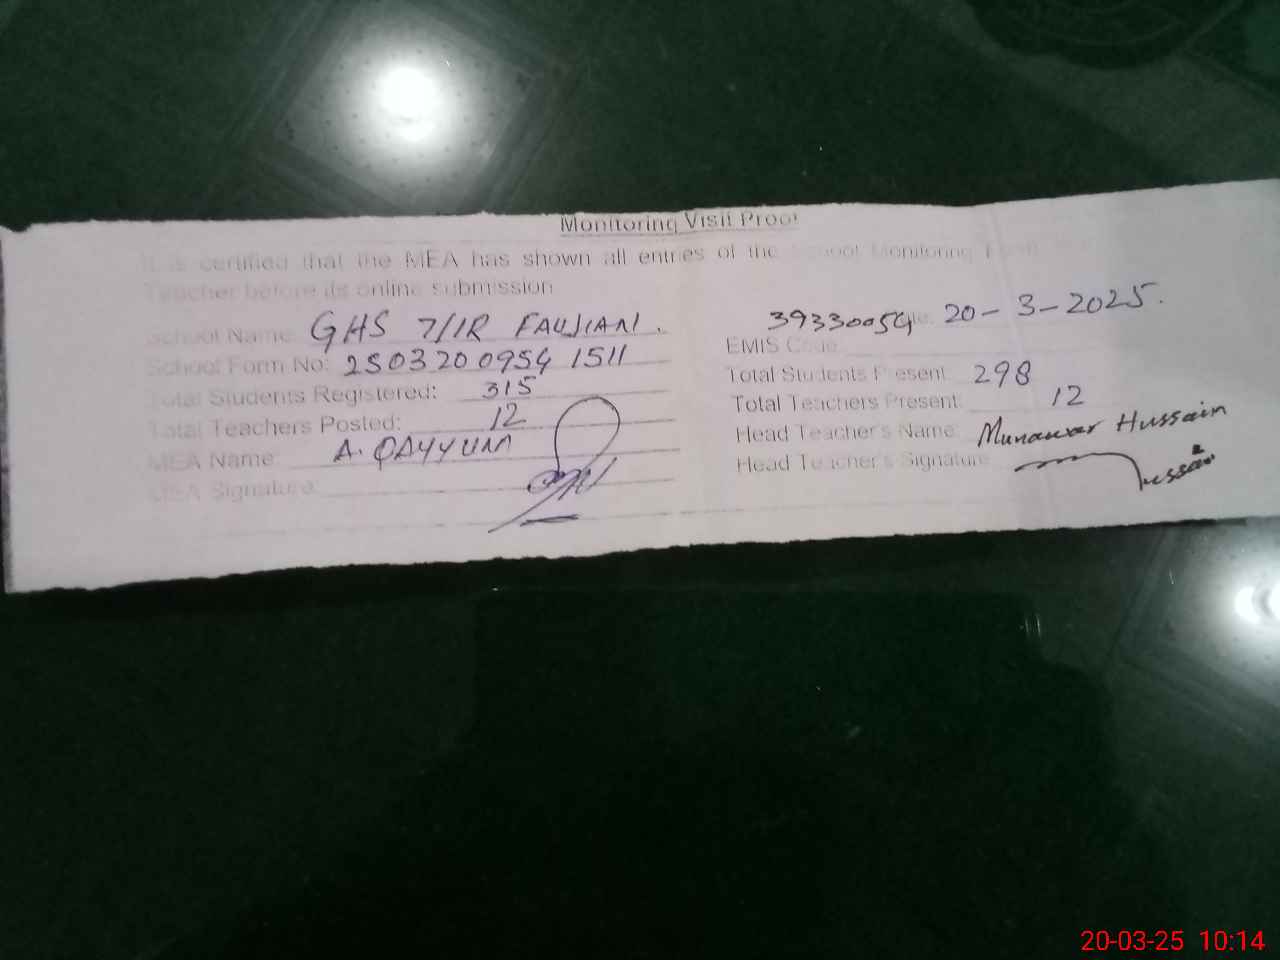 Monitoring Visit Proof
It is certified that the MEA has shown all entries of the School Monitoring Form
Teacher before its online submission
School Name: GHS 7/1R FAUJIANI.
39330054 Date: 20-3-2025.
School Form No: 2503200954 1511
EMIS Code:
Total Students Registered: 315
Total Students Present: 298
Total Teachers Posted: 12
Total Teachers Present: 12
MEA Name: A. QAYYUM
Head Teacher's Name: Munawar Hussain
MEA Signature:
Head Teacher's Signature:
20-03-25 10:14